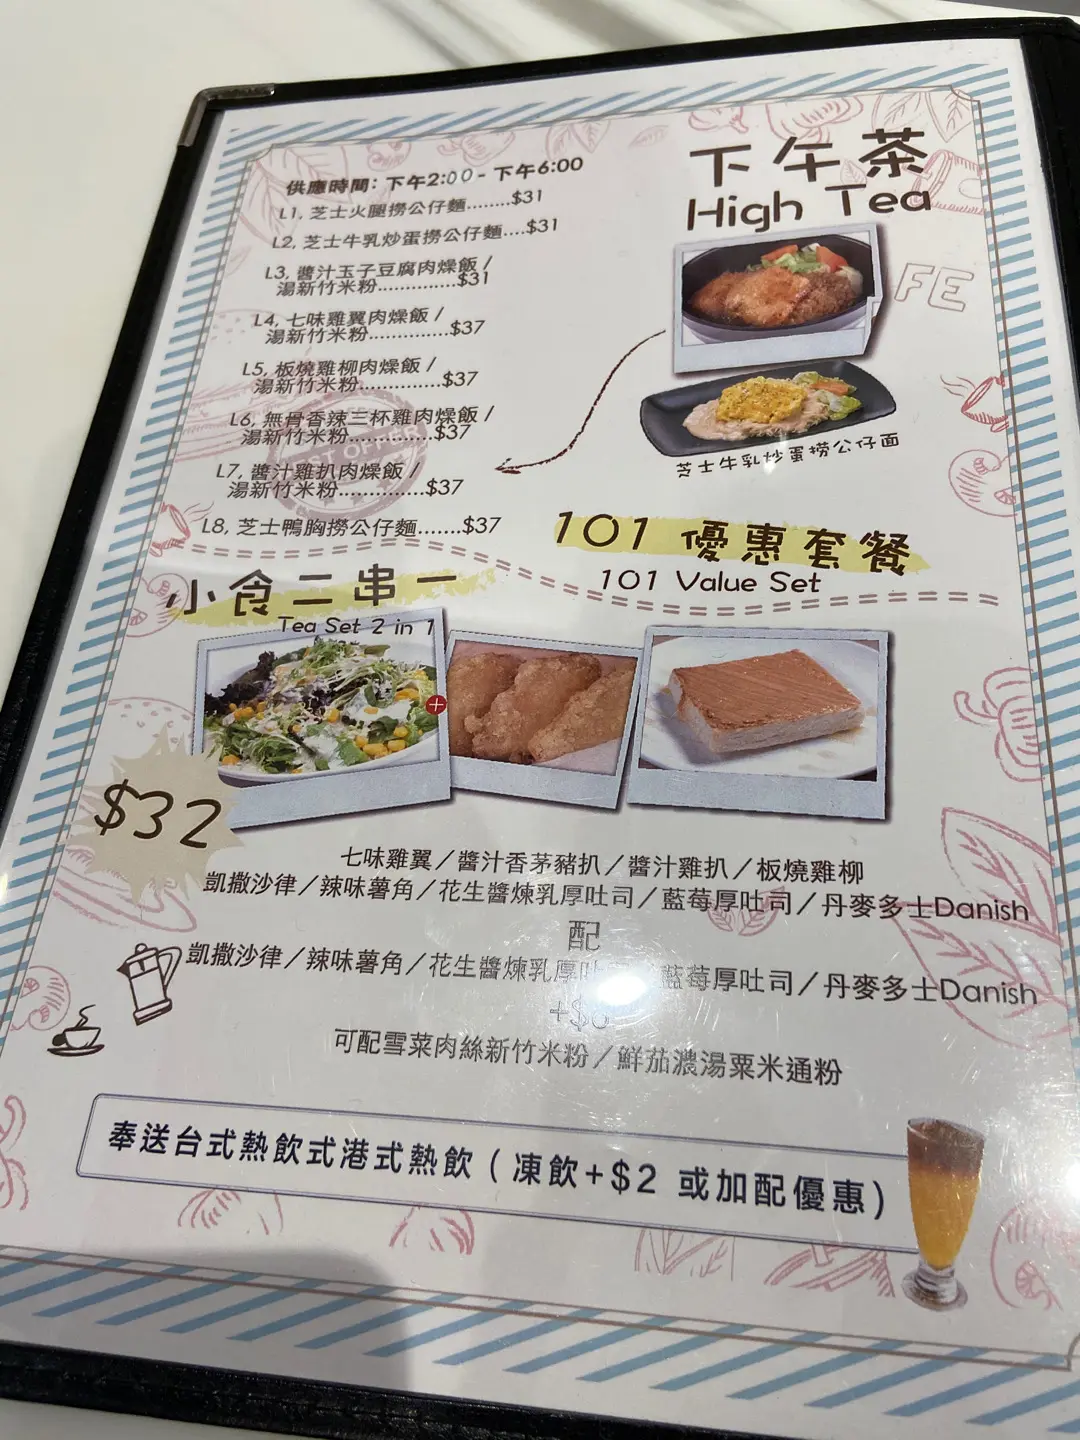 下午茶
High Tea
供應時間: 下午2:00 - 下午6:00
L1, 芝士火腿撈公仔麵........$31
L2, 芝士牛乳炒蛋撈公仔麵....$31
L3, 醬汁玉子豆腐肉燥飯 /
湯新竹米粉..............$31
L4, 七味雞翼肉燥飯 /
湯新竹米粉..............$37
L5, 板燒雞柳肉燥飯 /
湯新竹米粉..............$37
L6, 無骨香辣三杯雞肉燥飯 /
湯新竹米粉..............$37
L7, 醬汁雞扒肉燥飯 /
湯新竹米粉..............$37
L8, 芝士鴨胸撈公仔麵.......$37
FE
芝士牛乳炒蛋撈公仔面
OFFER
101 優惠套餐
101 Value Set
小食二串一
Tea Set 2 in 1
+
$32
七味雞翼／醬汁香茅豬扒／醬汁雞扒／板燒雞柳
凱撒沙律／辣味薯角／花生醬煉乳厚吐司／藍莓厚吐司／丹麥多士Danish
配
凱撒沙律／辣味薯角／花生醬煉乳厚 藍莓厚吐司／丹麥多士Danish
+$
可配雪菜肉絲新竹米粉／鮮茄濃湯粟米通粉
奉送台式熱飲式港式熱飲（凍飲+$2 或加配優惠）